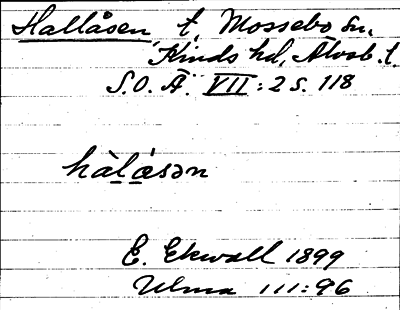 Hallåsen t. Mossebo sn.
Kinds hd, Älvsb. l.
S.O.Ä. VII:2 s. 118
hàlása̱n
E. Ekwall 1899
Ulma 111:96